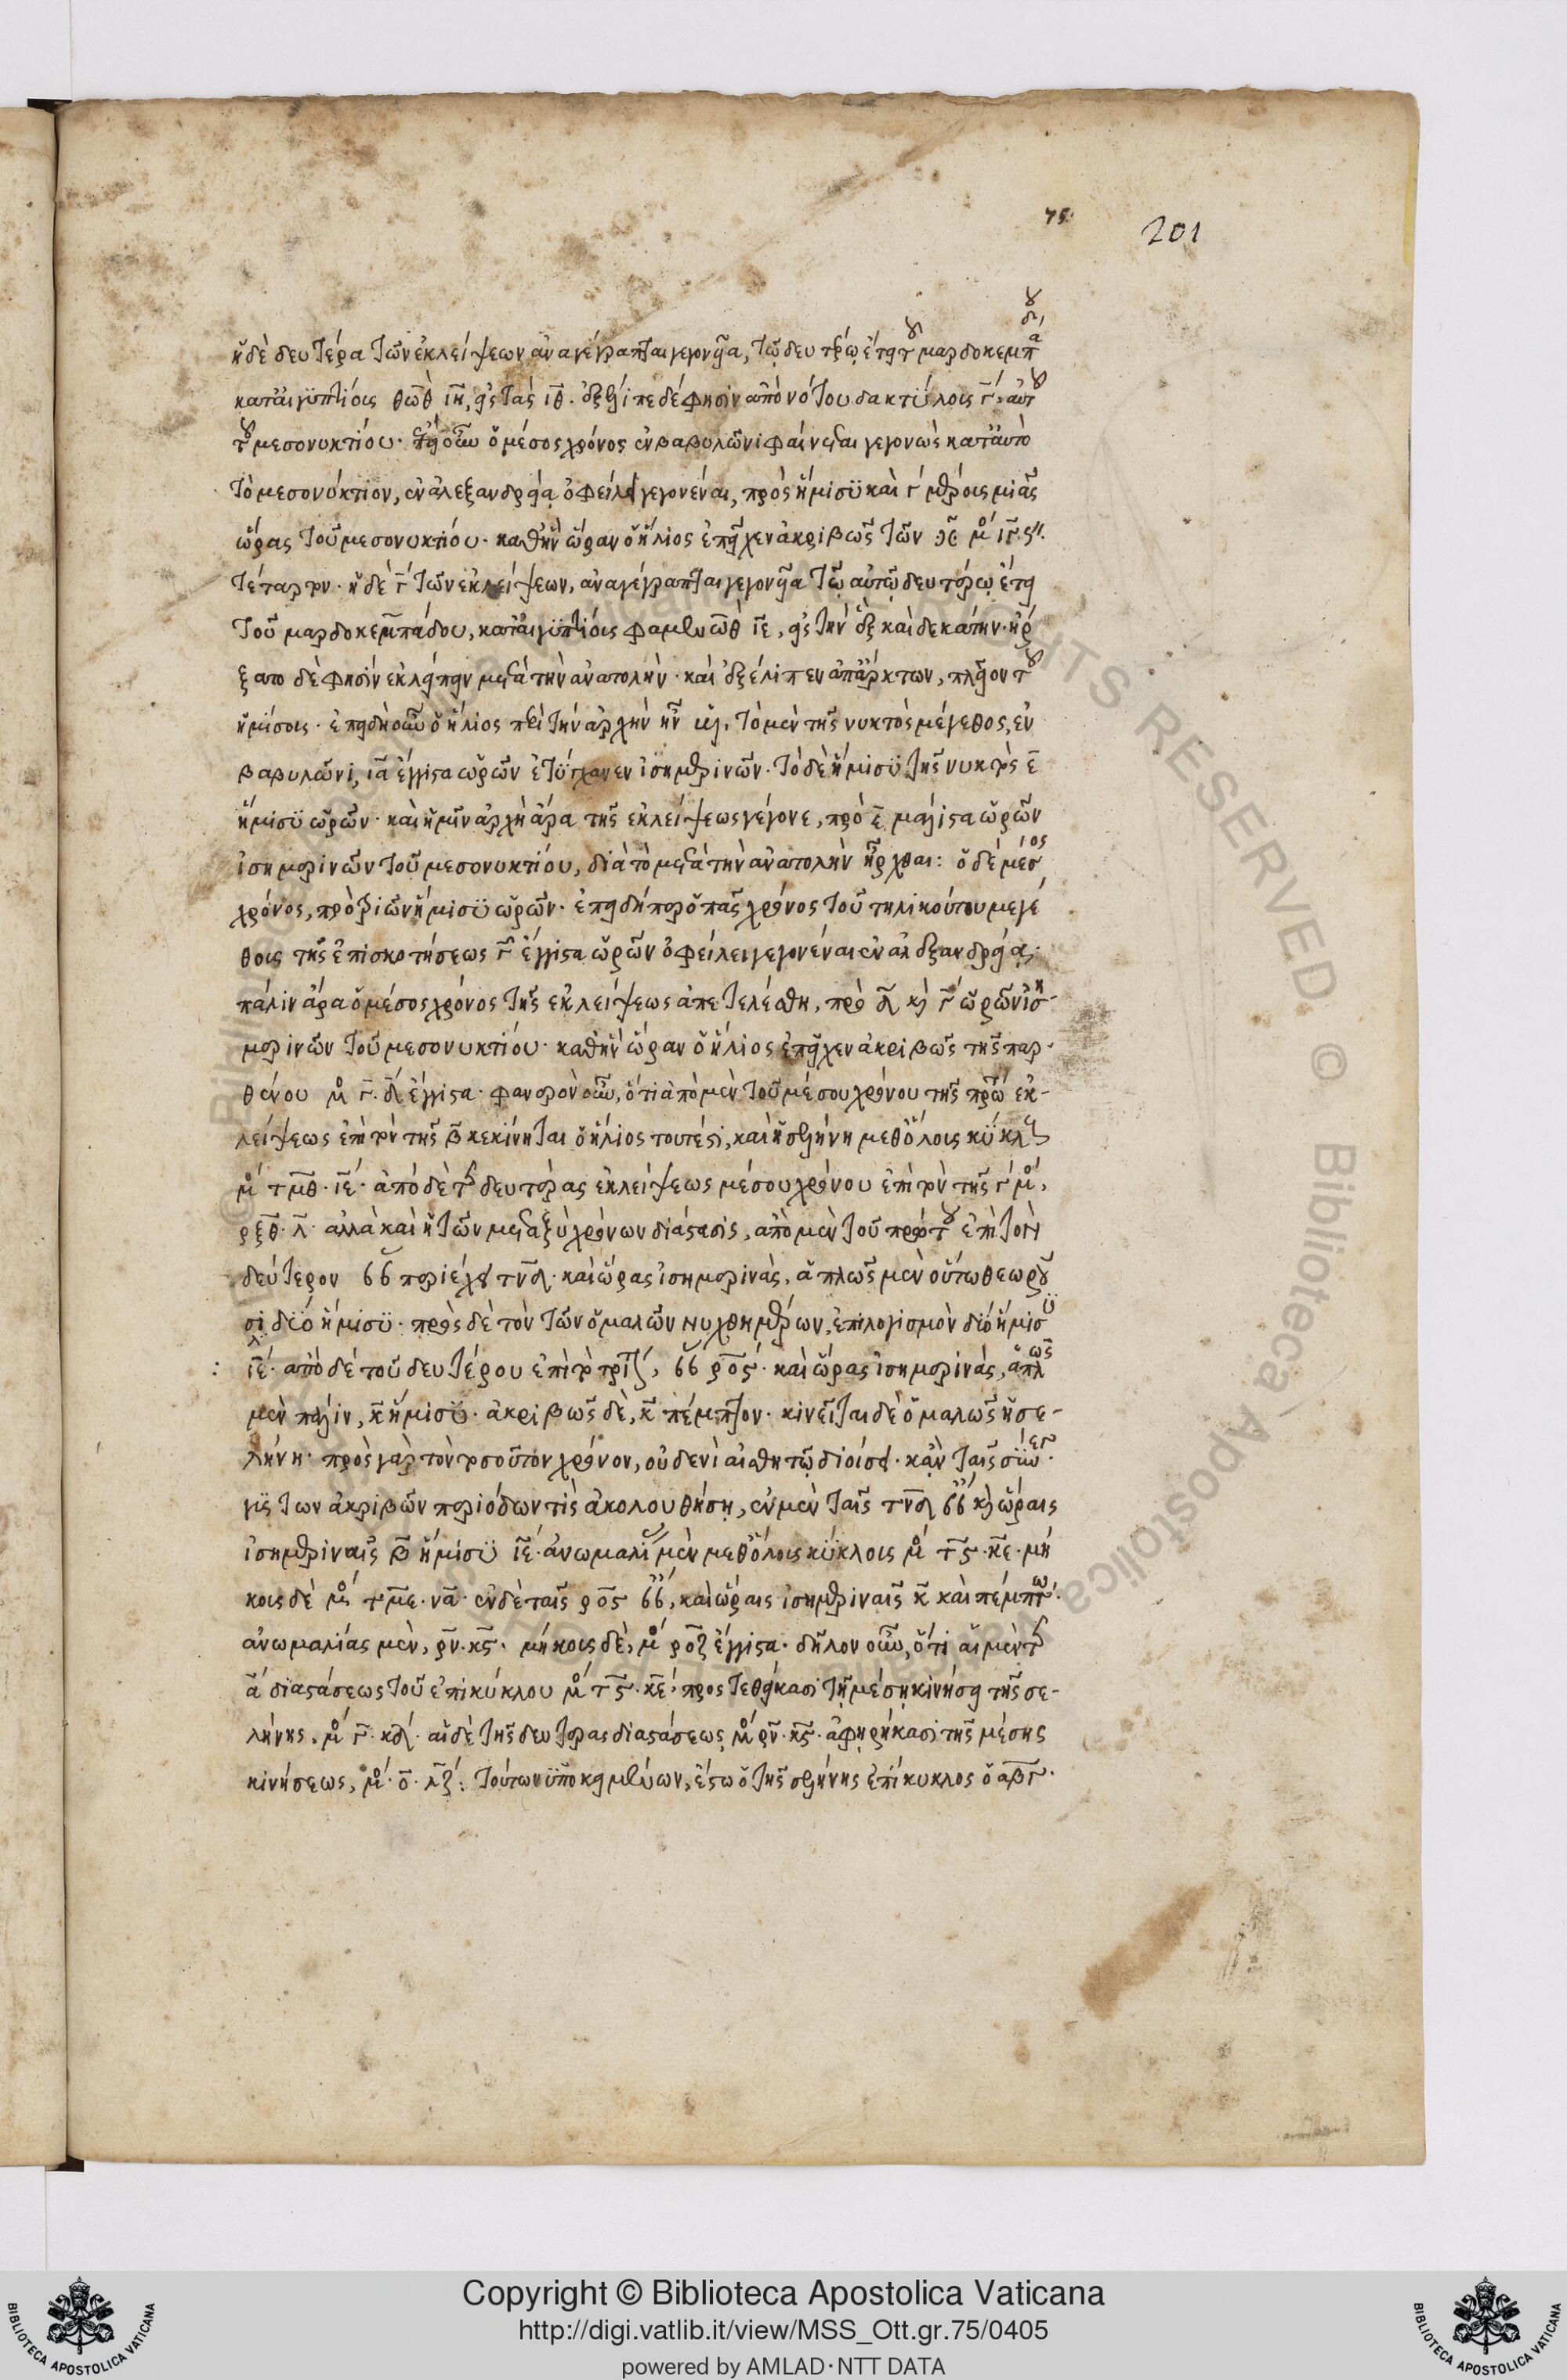 75
201
ἡ δὲ δευτέρα τῶν ἐκλείψεων ἀναγέγραπται γεγονῦια, τῷ δευτέρῳ ἔτει τοῦ μαρδοκεμπάδου
κατ' αἰγυπτίοις θωθ ιη, εἰς τὰς ιθ. ἐξέλιπε δέ φησιν ἀπὸ νότου δακτύλοις γ, αὐτοῦ
τοῦ μεσονυκτίου. ἐπεὶ οὖν ὁ μέσος χρόνος ἐν βαβυλῶνι φαίνεται γεγονὼς κατ' αὐτὸ
τὸ μεσονύκτιον, ἐν ἀλεξανδρείᾳ ὀφείλει γεγονέναι, πρὸς ἥμισυ καὶ γ μέροις μιᾶς
ὥρας τοῦ μεσονυκτίου. καθ' ἣν ὥραν ὁ ἥλιος ἐπεῖχεν ἀκριβῶς τῶν μο ιγ.
τέταρτον. ἡ δὲ γ τῶν ἐκλείψεων, ἀναγέγραπται γεγονῦια τῷ αὐτῷ δευτέρῳ ἔτει
τοῦ μαρδοκεμπάδου, κατ' αἰγυπτίοις φαμενωθ ιε, εἰς τὴν ἓξ καὶ δεκάτην. ἤρ
ξατο δέ φησιν ἐκλείπειν μετὰ τὴν ἀνατολήν. καὶ ἐξέλιπεν ἀπ' ἄρκτων, πλεῖον τοῦ
ἡμίσοις. ἐπειδὴ οὖν ὁ ἥλιος περὶ τὴν ἀρχὴν ἦν τὸ μὲν τῆς νυκτὸς μέγεθος, ἐν
βαβυλῶνι, ια ἔγγιστα ὡρῶν ἐτύγχανεν ἰσημερινῶν. τὸ δὲ ἥμισυ τῆς νυκτὸς ε
ἥμισυ ὡρῶν. καὶ ἡμῖν ἀρχὴ ἄρα τῆς ἐκλείψεως γέγονε, πρὸ ε μάλιστα ὡρῶν
ἰσημερινῶν τοῦ μεσονυκτίου, διὰ τὸ μετὰ τὴν ἀνατολὴν ἦρχθαι: ὁ δὲ μέσος
χρόνος, πρὸ τριῶν ἥμισυ ὡρῶν. ἐπειδήπερ ὁ πᾶς χρόνος τοῦ τηλικούτου μεγέ
θοις τῆς ἐπισκοτήσεως γ ἔγγιστα ὡρῶν ὀφείλει γεγονέναι ἐν ἀλεξανδρείᾳ.
πάλιν ἄρα ὁ μέσος χρόνος τῆς ἐκλείψεως ἀπετελέσθη, πρὸ δ καὶ γ ὡρῶν ἰση-
μερινῶν τοῦ μεσονυκτίου. καθ' ἣν ὥραν ὁ ἥλιος ἐπεῖχεν ἀκριβῶς τῆς παρ-
θένου μο γ. δ ἔγγιστα. φανερὸν οὖν, ὅτι ἀπὸ μὲν τοῦ μέσου χρόνου τῆς πρώτης ἐκ-
λείψεως ἐπὶ τὸν τῆς β κεκίνηται ὁ ἥλιος τουτέστι, καὶ ἡ σελήνη μεθ' ὅλοις κύκλους
μο τμθ. ιε. ἀπὸ δὲ τῆς δευτέρας ἐκλείψεως μέσου χρόνου ἐπὶ τὸν τῆς γ μο,
ρξθ. λ. ἀλλὰ καὶ ἡ τῶν μεταξὺ χρόνων διάστασις, ἀπὸ μὲν τοῦ πρώτου ἐπὶ τὸν
δεύτερον περιέχει τνδ. καὶ ὥρας ἰσημερινάς, ἁπλῶς μὲν οὕτω θεωροῦ
σι δύο ἥμισυ. πρὸς δὲ τὸν τῶν ὁμαλῶν νυχθημέρων, ἐπιλογισμὸν δύο ἥμισυ
ιε. ἀπὸ δὲ τοῦ δευτέρου ἐπὶ τὸ τρίτον, ρος. καὶ ὥρας ἰσημερινάς, ἁπλῶς
μὲν πάλιν, κ ἥμισυ. ἀκριβῶς δὲ, κ πέμπτον. κινεῖται δὲ ὁμαλῶς ἡ σε-
λήνη. πρὸς γὰρ τὸν τοσοῦτον χρόνον, οὐδενὶ αἰσθητῷ διοίσει. κἂν ταῖς σύνεγ-
γις των ἀκριβῶν περιόδων τίς ἀκολουθήσῃ, ἐν μὲν ταῖς τνδ καὶ ὥραις
ἰσημεριναῖς β ἥμισυ ιε. ἀνωμαλίας μὲν μεθ' ὅλοις κύκλοις μο τς. κε. μή
κοις δὲ μο τμε. να. ἐν δὲ ταῖς ρος, καὶ ὥραις ἰσημεριναῖς κ καὶ πέμπτῳ.
ἀνωμαλίας μὲν, ρν. κς. μήκοις δὲ, μο ροζ ἔγγιστα. δῆλον οὖν, ὅτι αἱ μὲν τῆς
α διαστάσεως τοῦ ἐπικύκλου μο τς. κε. προστεθείκασι τῇ μέσῃ κινήσει τῆς σε-
λήνης, μο γ. κδ. αἱ δὲ τῆς δευτέρας διαστάσεως μο ρν. κς. ἀφῃρήκασι τῆς μέσης
κινήσεως, μο. ο. λζ: τούτων ὑποκειμένων, ἔστω ὁ τῆς σελήνης ἐπίκυκλος ὁ αβγ.
Copyright © Biblioteca Apostolica Vaticana
http://digi.vatlib.it/view/MSS_Ott.gr.75/0405
powered by AMLAD·NTT DATA